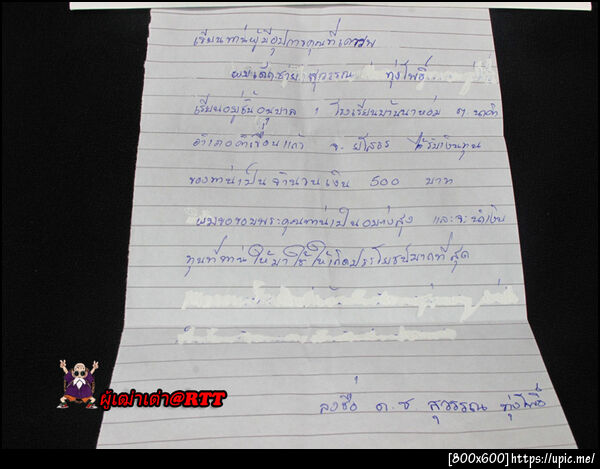 เรียนท่านผู้มีอุปการคุณที่เคารพ
ผมเด็กชาย สุวรรณ ทุ่งโพธิ์
เรียนอยู่ชั้นอนุบาล 1 โรงเรียนบ้านนาหล่ม ต.นาคำ
อำเภอคำเขื่อนแก้ว จ. ยโสธร ได้รับเงินทุน
ของท่านเป็นจำนวนเงิน 500 บาท
ผมขอขอบพระคุณท่านเป็นอย่างสูง และจะนำเงิน
ทุนที่ท่านให้มาใช้ให้เกิดประโยชน์มากที่สุด
ลงชื่อ ด.ช. สุวรรณ ทุ่งโพธิ์
ผู้เฒ่าเต่า@RTT
[800x600]https://upic.me/